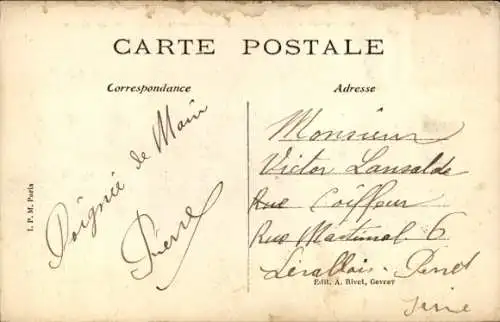 CARTE POSTALE
Correspondance
Adresse
Poignée de Main
Pierre
Monsieur
Victor Lansalde
Rue Coiffeur
Rue Martinval 6
Levallois-Perret
Seine
Edit. A. Rivet, Gevrey
I. P. M. Paris